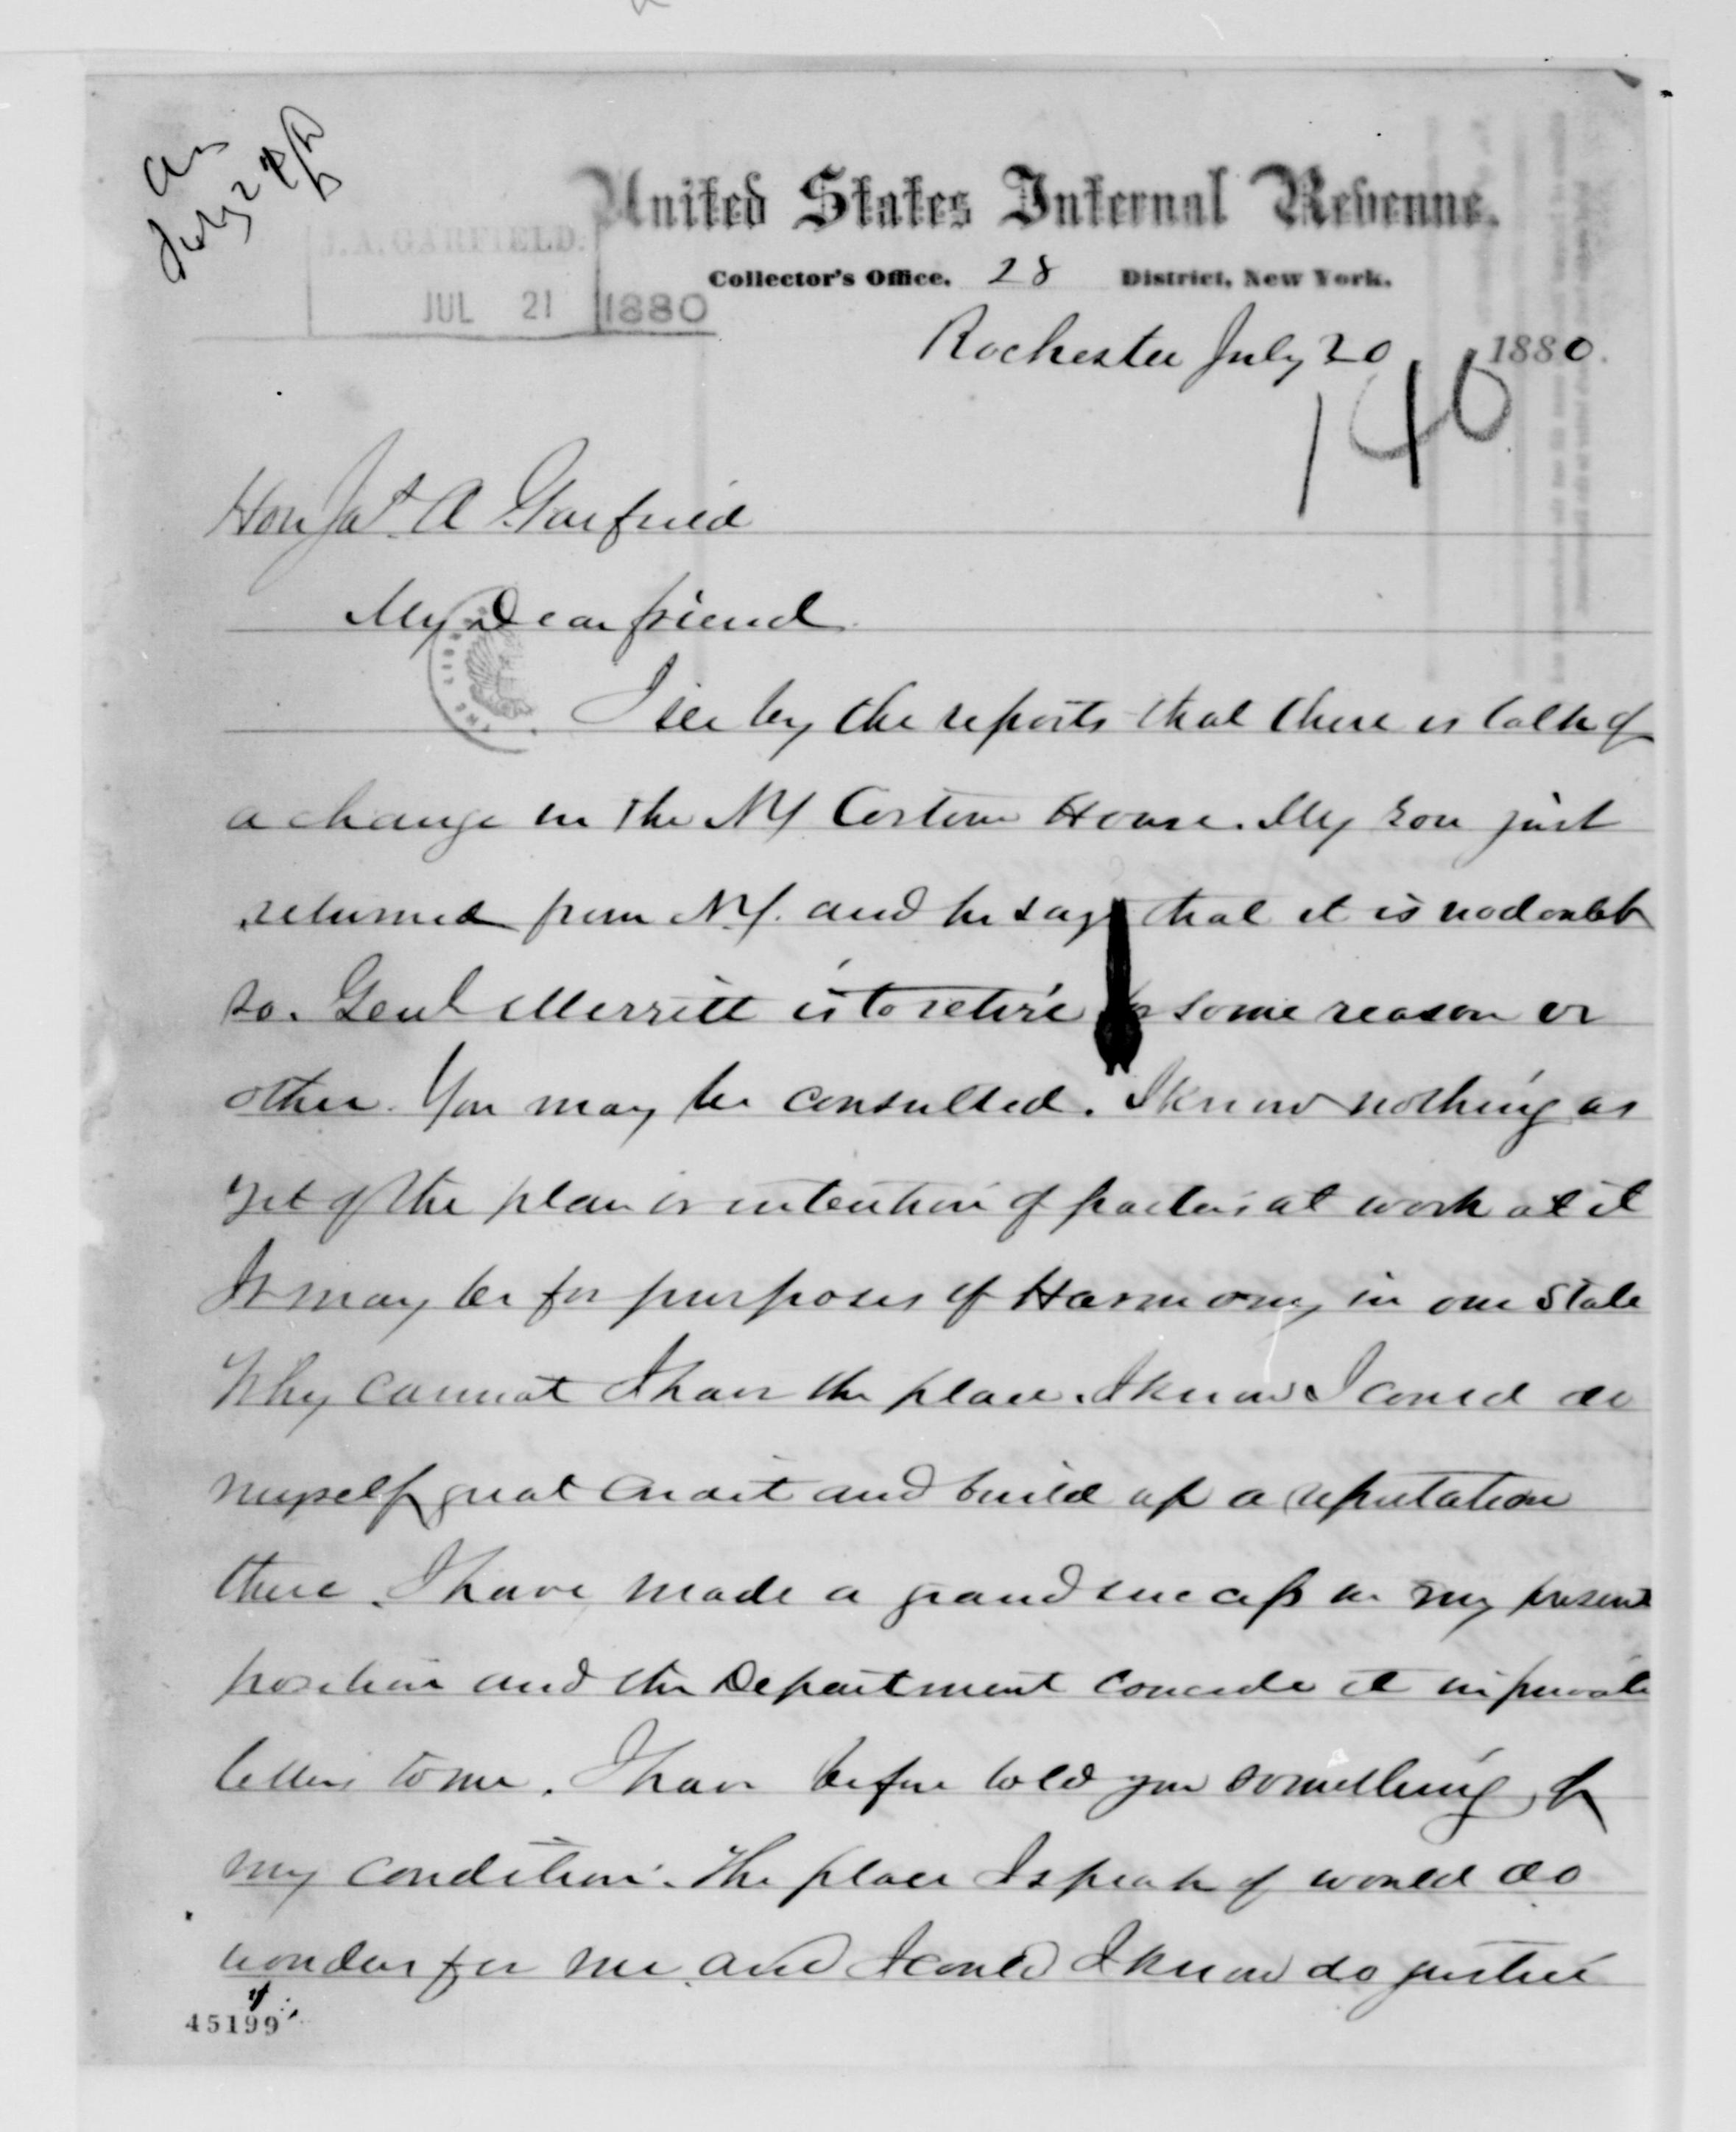 Ans
July 24th
J. A. GARFIELD.
JUL 21 1880
United States Internal Revenue.
Collector's Office, 28 District, New York.
Rochester July 20 1880.
140
Hon Jas. A Garfield
My Dear friend
I see by the reports that there is talk of
a change in the NY Custom House. My son just
returned from NY. and he says that it is no doubt
so. Genl Merritt is to retire for some reason or
other. You may be consulted. I know nothing as
yet of the plan or intention of parties at work at it
It may be for purposes of Harmony in our State
Why cannot I have the place. I know I could do
myself great credit and build up a reputation
there. I have made a grand success in my present
position and the Department concede it in private
letters to me. I have before told you something of
my condition. The place I speak of would do
wonders for me and I could I know do justice
45199